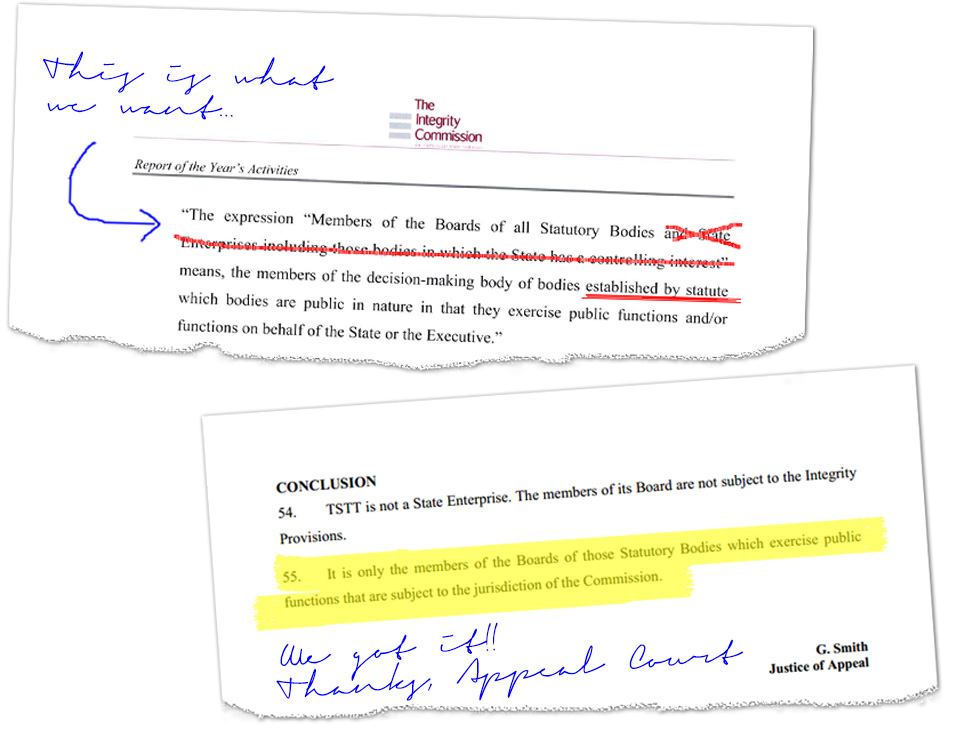 This is what
we want...
The
Integrity
Commission
Report of the Year's Activities
“The expression “Members of the Boards of all Statutory Bodies and State
Enterprises including those bodies in which the State has a controlling interest”
means, the members of the decision-making body of bodies established by statute
which bodies are public in nature in that they exercise public functions and/or
functions on behalf of the State or the Executive.”
CONCLUSION
54. TSTT is not a State Enterprise. The members of its Board are not subject to the Integrity
Provisions.
55. It is only the members of the Boards of those Statutory Bodies which exercise public
functions that are subject to the jurisdiction of the Commission.
We got it!!
Thanks, Appeal Court
G. Smith
Justice of Appeal